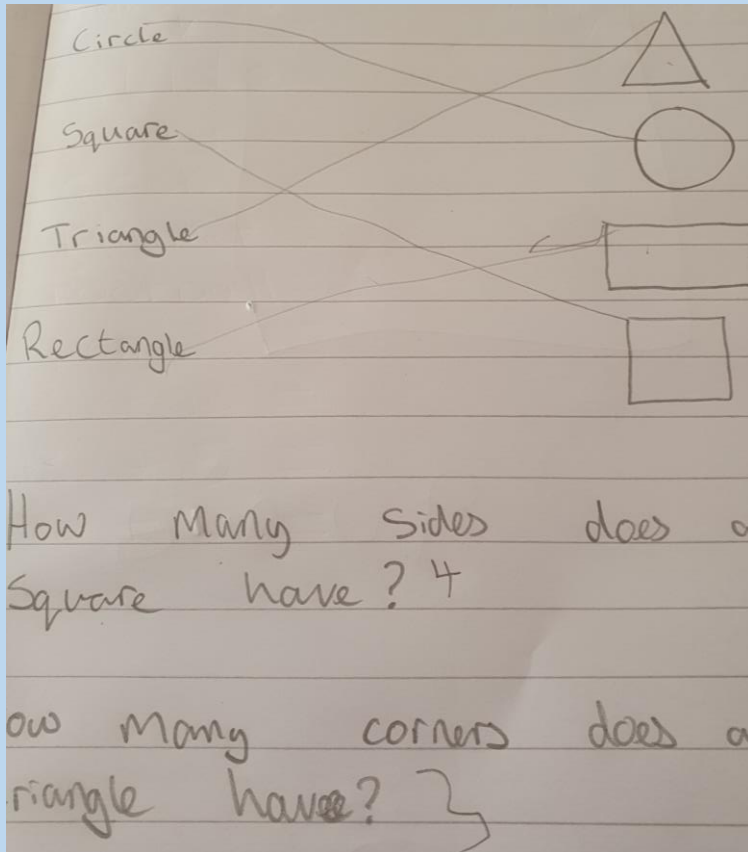 Circle
Square
Triangle
Rectangle
How many sides does a
Square have? 4
ow many corners does a
riangle have? 3